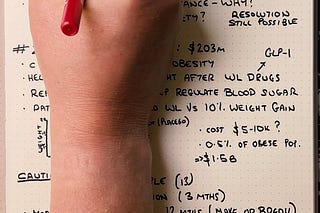 ANCE - WHY?
TY? RESOLUTION
STILL POSSIBLE
#2 : $203M
GLP-1
C OBESITY
HEL HT AFTER WL DRUGS
RE P REGULATE BLOOD SUGAR
DAT WL VS 10% WEIGHT GAIN
(PLACEBO)
WEIGHT
• COST $5-10K?
• 0.5% OF OBESE POP.
⇒ $1.5B
CAUTI PLE (13)
ION (3 MTHS)
12 MTHS (MAKE OR BREAK)